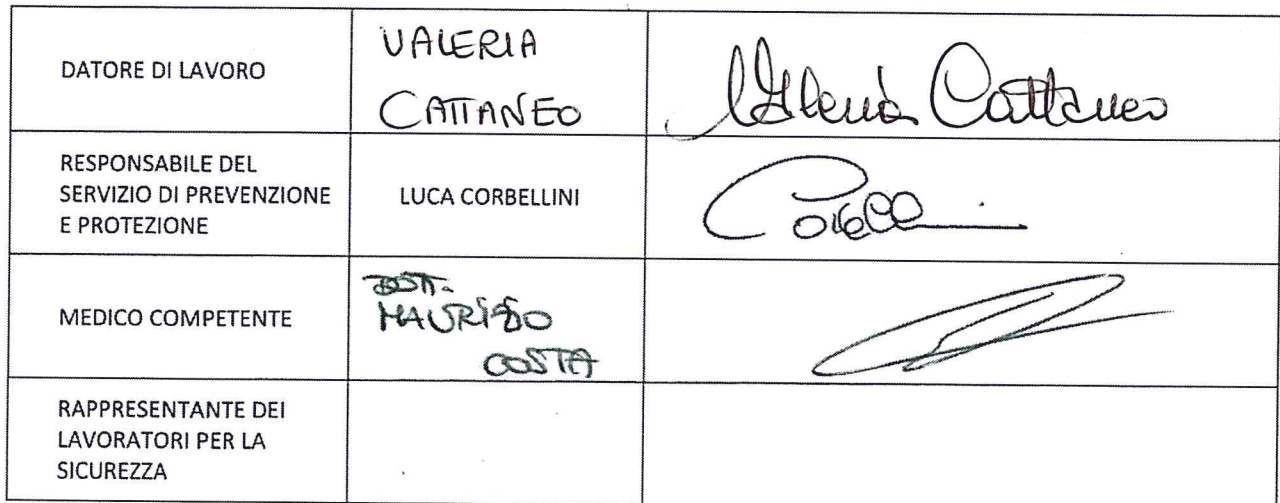 DATORE DI LAVORO
VALERIA
CATTANEO
Valeria Cattaneo
RESPONSABILE DEL
SERVIZIO DI PREVENZIONE
E PROTEZIONE
LUCA CORBELLINI
MEDICO COMPETENTE
DOTT.
MAURIZIO
COSTA
RAPPRESENTANTE DEI
LAVORATORI PER LA
SICUREZZA